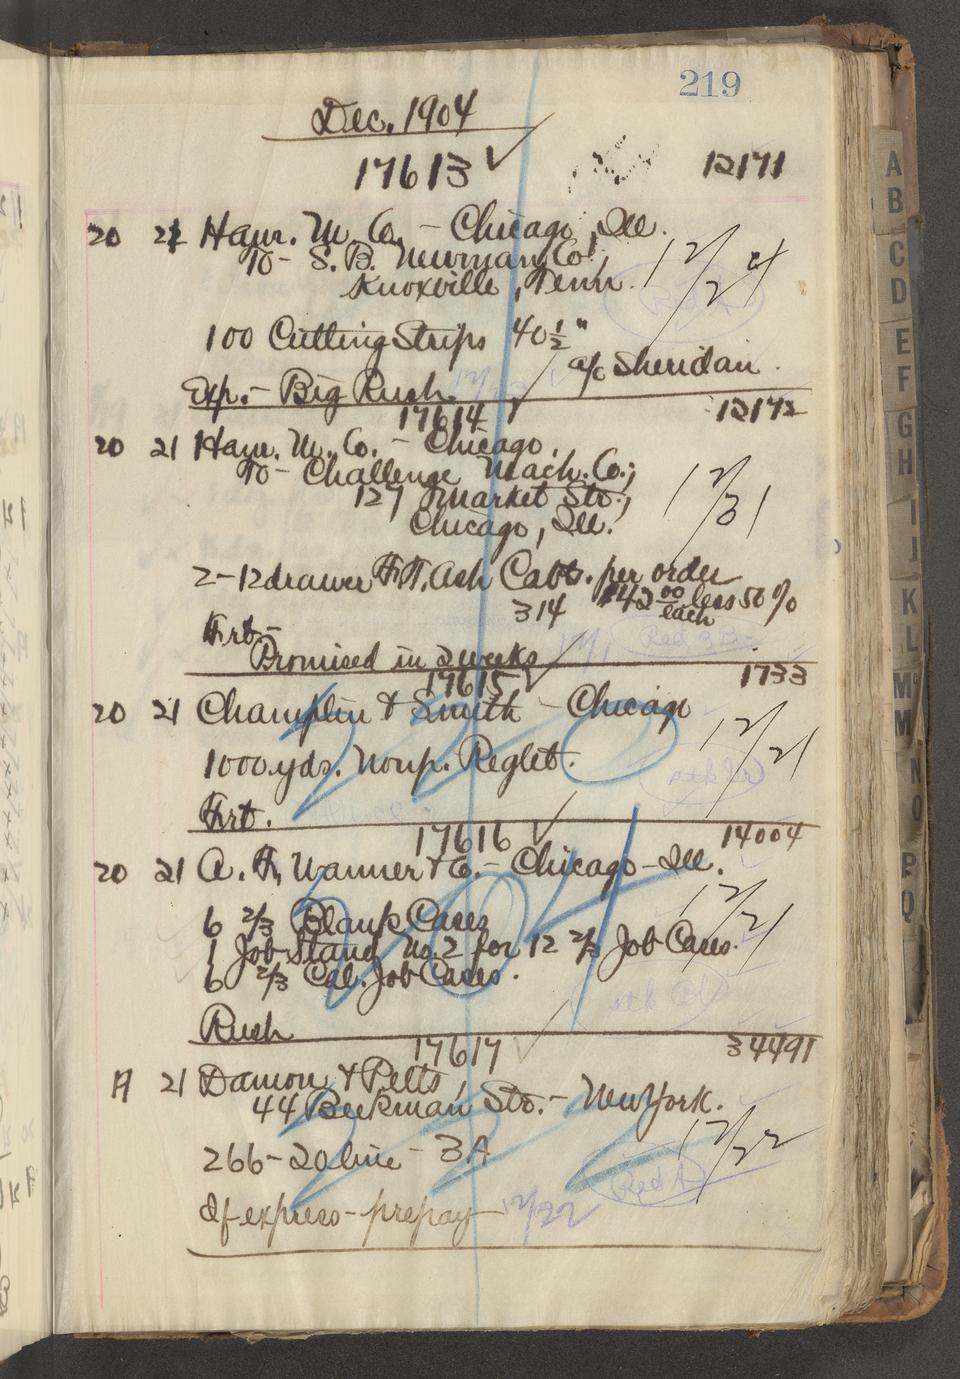 219
Dec. 1904
17613 ✓ 12171
20 21 Ham. M. Co. - Chicago, Ill.
To - S. B. Newman Co.,
Knoxville, Tenn. 12/21
100 Cutting Strips 40½"
a/c Sheridan.
Exp. - Big Rush.
17614 12172
20 21 Ham. M. Co. - Chicago,
To - Challenge Mach. Co.,
127 Market St., 12/31
Chicago, Ill.
2-12 drawer Ash Cabts. per order
314 $42.00 less 50%
each
Frt. -
Promised in 2 weeks
17615 ✓ 1733
20 21 Champlin & Smith - Chicago
12/21
1000 yds. Nonp. Reglet.
Frt.
17616 ✓ 14004
20 21 A. F. Wanner & Co. - Chicago - Ill.
12/21
6 2/3 Blank Cases
1 Job Stand No. 2 for 12 2/3 Job Cases.
6 2/3 Cal. Job Cases.
Rush
17617 ✓ 34491
19 21 Damon & Petts,
44 Beekman St. - New York.
12/22
266 - 20 line - 3A
Red A
If express - prepay 12/22
A
B
C
D
E
F
G
H
I
J
K
L
Mc
M
N
O
P
Q